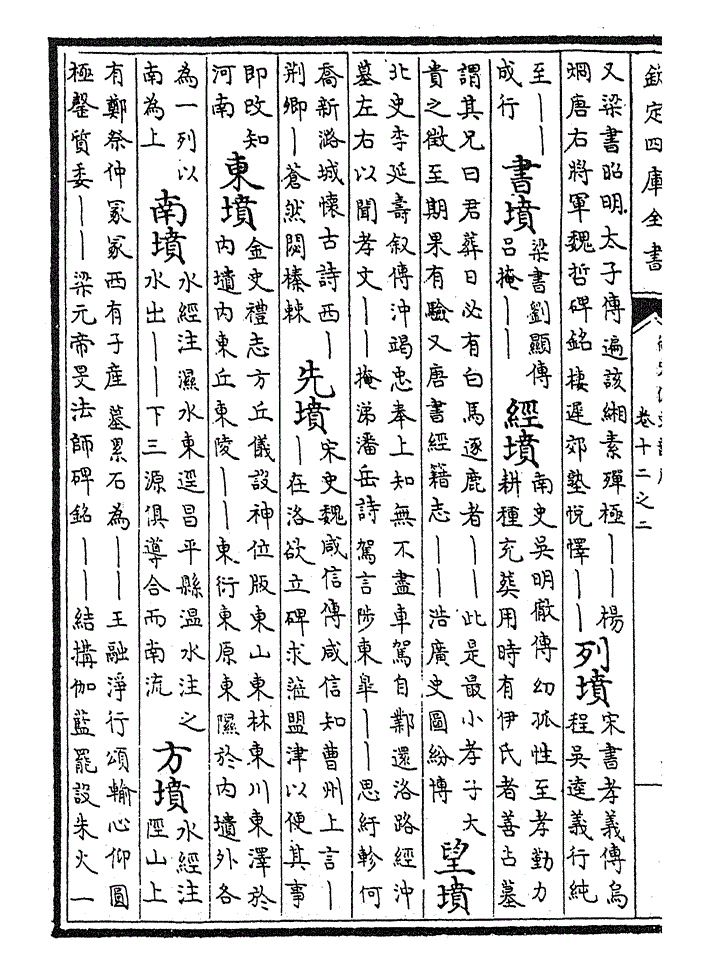 欽定四庫全書
卷十二之二
又梁書昭明太子傳遍該緗素殫極——楊
烱唐右將軍魏哲碑銘棲遲郊塾悅懌——
列墳
宋書孝義傳烏
程吳逵義行純
至——
成行
書墳
梁書劉顯傳
呂掩——
經墳
南史吳明徹傳幼孤性至孝勤力
耕種充葬用時有伊氏者善占墓
謂其兄曰君葬日必有白馬逐鹿者——此是最小孝子大
貴之徵至期果有驗又唐書經籍志——浩廣史圖紛博
望墳
北史李延壽叙傳沖竭忠奉上知無不盡車駕自鄴還洛路經沖
墓左右以聞孝文——掩涕潘岳詩駕言陟東皐——思紆軫何
喬新潞城懷古詩西—
荆卿—蒼然閟榛棘
先墳
宋史魏咸信傳咸信知曹州上言—
—在洛欲立碑求涖盟津以便其事
即改知
河南
東墳
金史禮志方丘儀設神位版東山東林東川東澤於
内壝内東丘東陵——東衍東原東隰於内壝外各
為一列以
南為上
南墳
水經注濕水東逕昌平縣温水注之
水出——下三源俱導合而南流
方墳
水經注
陘山上
有鄭祭仲冡冡西有子産墓累石為——王融淨行頌輸心仰圓
極罄質委——梁元帝旻法師碑銘——結搆伽藍罷設朱火一